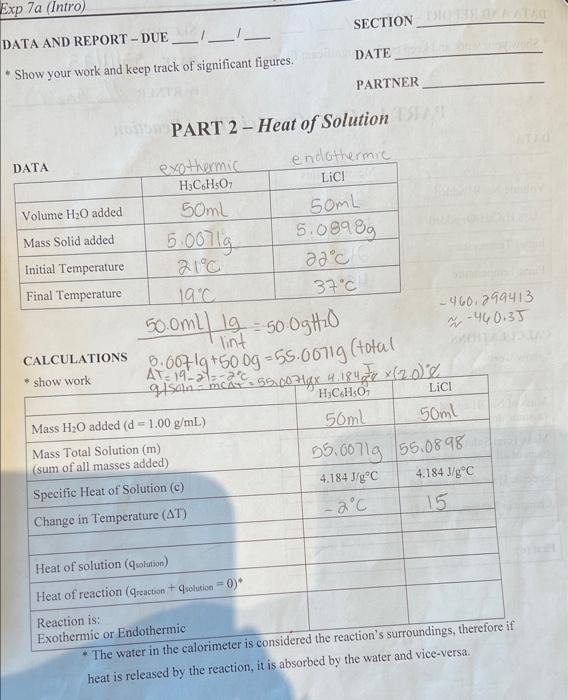 Exp 7a (Intro)
DATA AND REPORT – DUE ___/___/___
SECTION
* Show your work and keep track of significant figures.
DATE
PARTNER
PART 2 – Heat of Solution
DATA
exothermic endothermic
H₃C₆H₅O₇ LiCl
Volume H₂O added 50mL 50mL
Mass Solid added 5.0071g 5.0898g
Initial Temperature 21°C 22°C
Final Temperature 19°C 37°C
-460.299413
≈ -460.3J
50.0mL | 1g / 1mL = 50.0g H₂O
CALCULATIONS
5.0071g + 50.0g = 55.0071g (total
* show work
ΔT = 19-21 = -2°C
qsoln = mcΔT = 55.0071g x 4.184 J/g°C x (-2.0)°C
H₃C₆H₅O₇ LiCl
Mass H₂O added (d = 1.00 g/mL) 50ml 50ml
Mass Total Solution (m) 55.0071g 55.0898
(sum of all masses added)
Specific Heat of Solution (c) 4.184 J/g°C 4.184 J/g°C
Change in Temperature (ΔT) -2°C 15
Heat of solution (qsolution)
Heat of reaction (qreaction + qsolution = 0)*
Reaction is:
Exothermic or Endothermic
* The water in the calorimeter is considered the reaction's surroundings, therefore if
heat is released by the reaction, it is absorbed by the water and vice-versa.